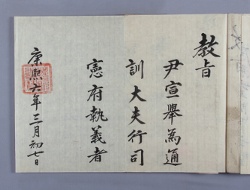 教旨
尹宣擧為通
訓大夫行司
憲府執義者
康熙六年三月初七日